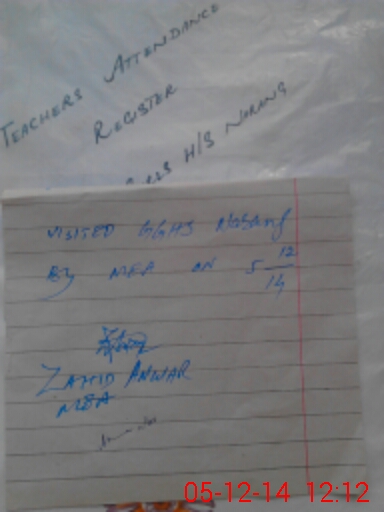 TEACHERS ATTENDANCE
REGISTER
H/S NORANG
VISITED GGHS Norang
By MEA ON 5 12/14
ZAHID ANWAR
MEA
05-12-14 12:12